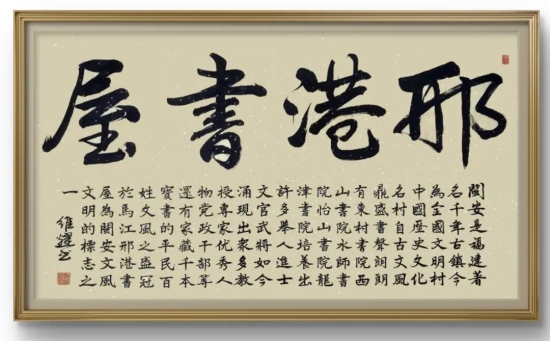 邢港書屋
閩安是福建著
名千年古鎮今
為全國文明村
中國歷史文化
名村自古文風
鼎盛書聲朗朗
有東村書院西
山書院水師書
院怡山書院龍
津書院培養出
許多舉人進士
文官武將如今
涌現出衆多教
授專家优秀人
物党政干部等
還有家藏千本
寶書的平民百
姓文風之盛冠
於馬江邢港書
屋為閩安文風
文明的標志之
一